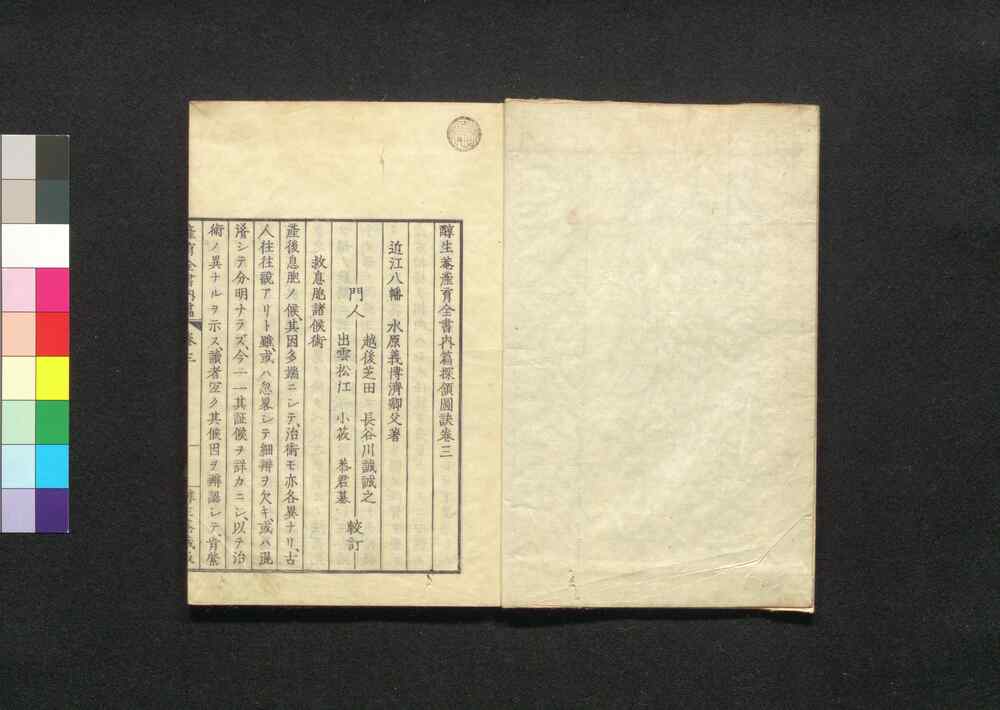 醇生菴產育全書內篇探頷圖訣卷三
近江八幡　水原義博濟卿父著
門人
越後芝田　長谷川誠誠之
出雲松江　小莜　恭君墓
較訂
救息胞諸候術
產後息胞ノ候、其因多端ニシテ、治術モ亦各異ナリ、古
人往往說アリト雖、或ハ忽畧シテ細辨ヲ欠キ、或ハ混
淆シテ分明ナラズ、今一一其証候ヲ詳カニシ、以テ治
術ノ異ナルヲ示ス、讀者宜ク其候因ヲ辨認シテ、肯綮
產育全書內篇　卷三